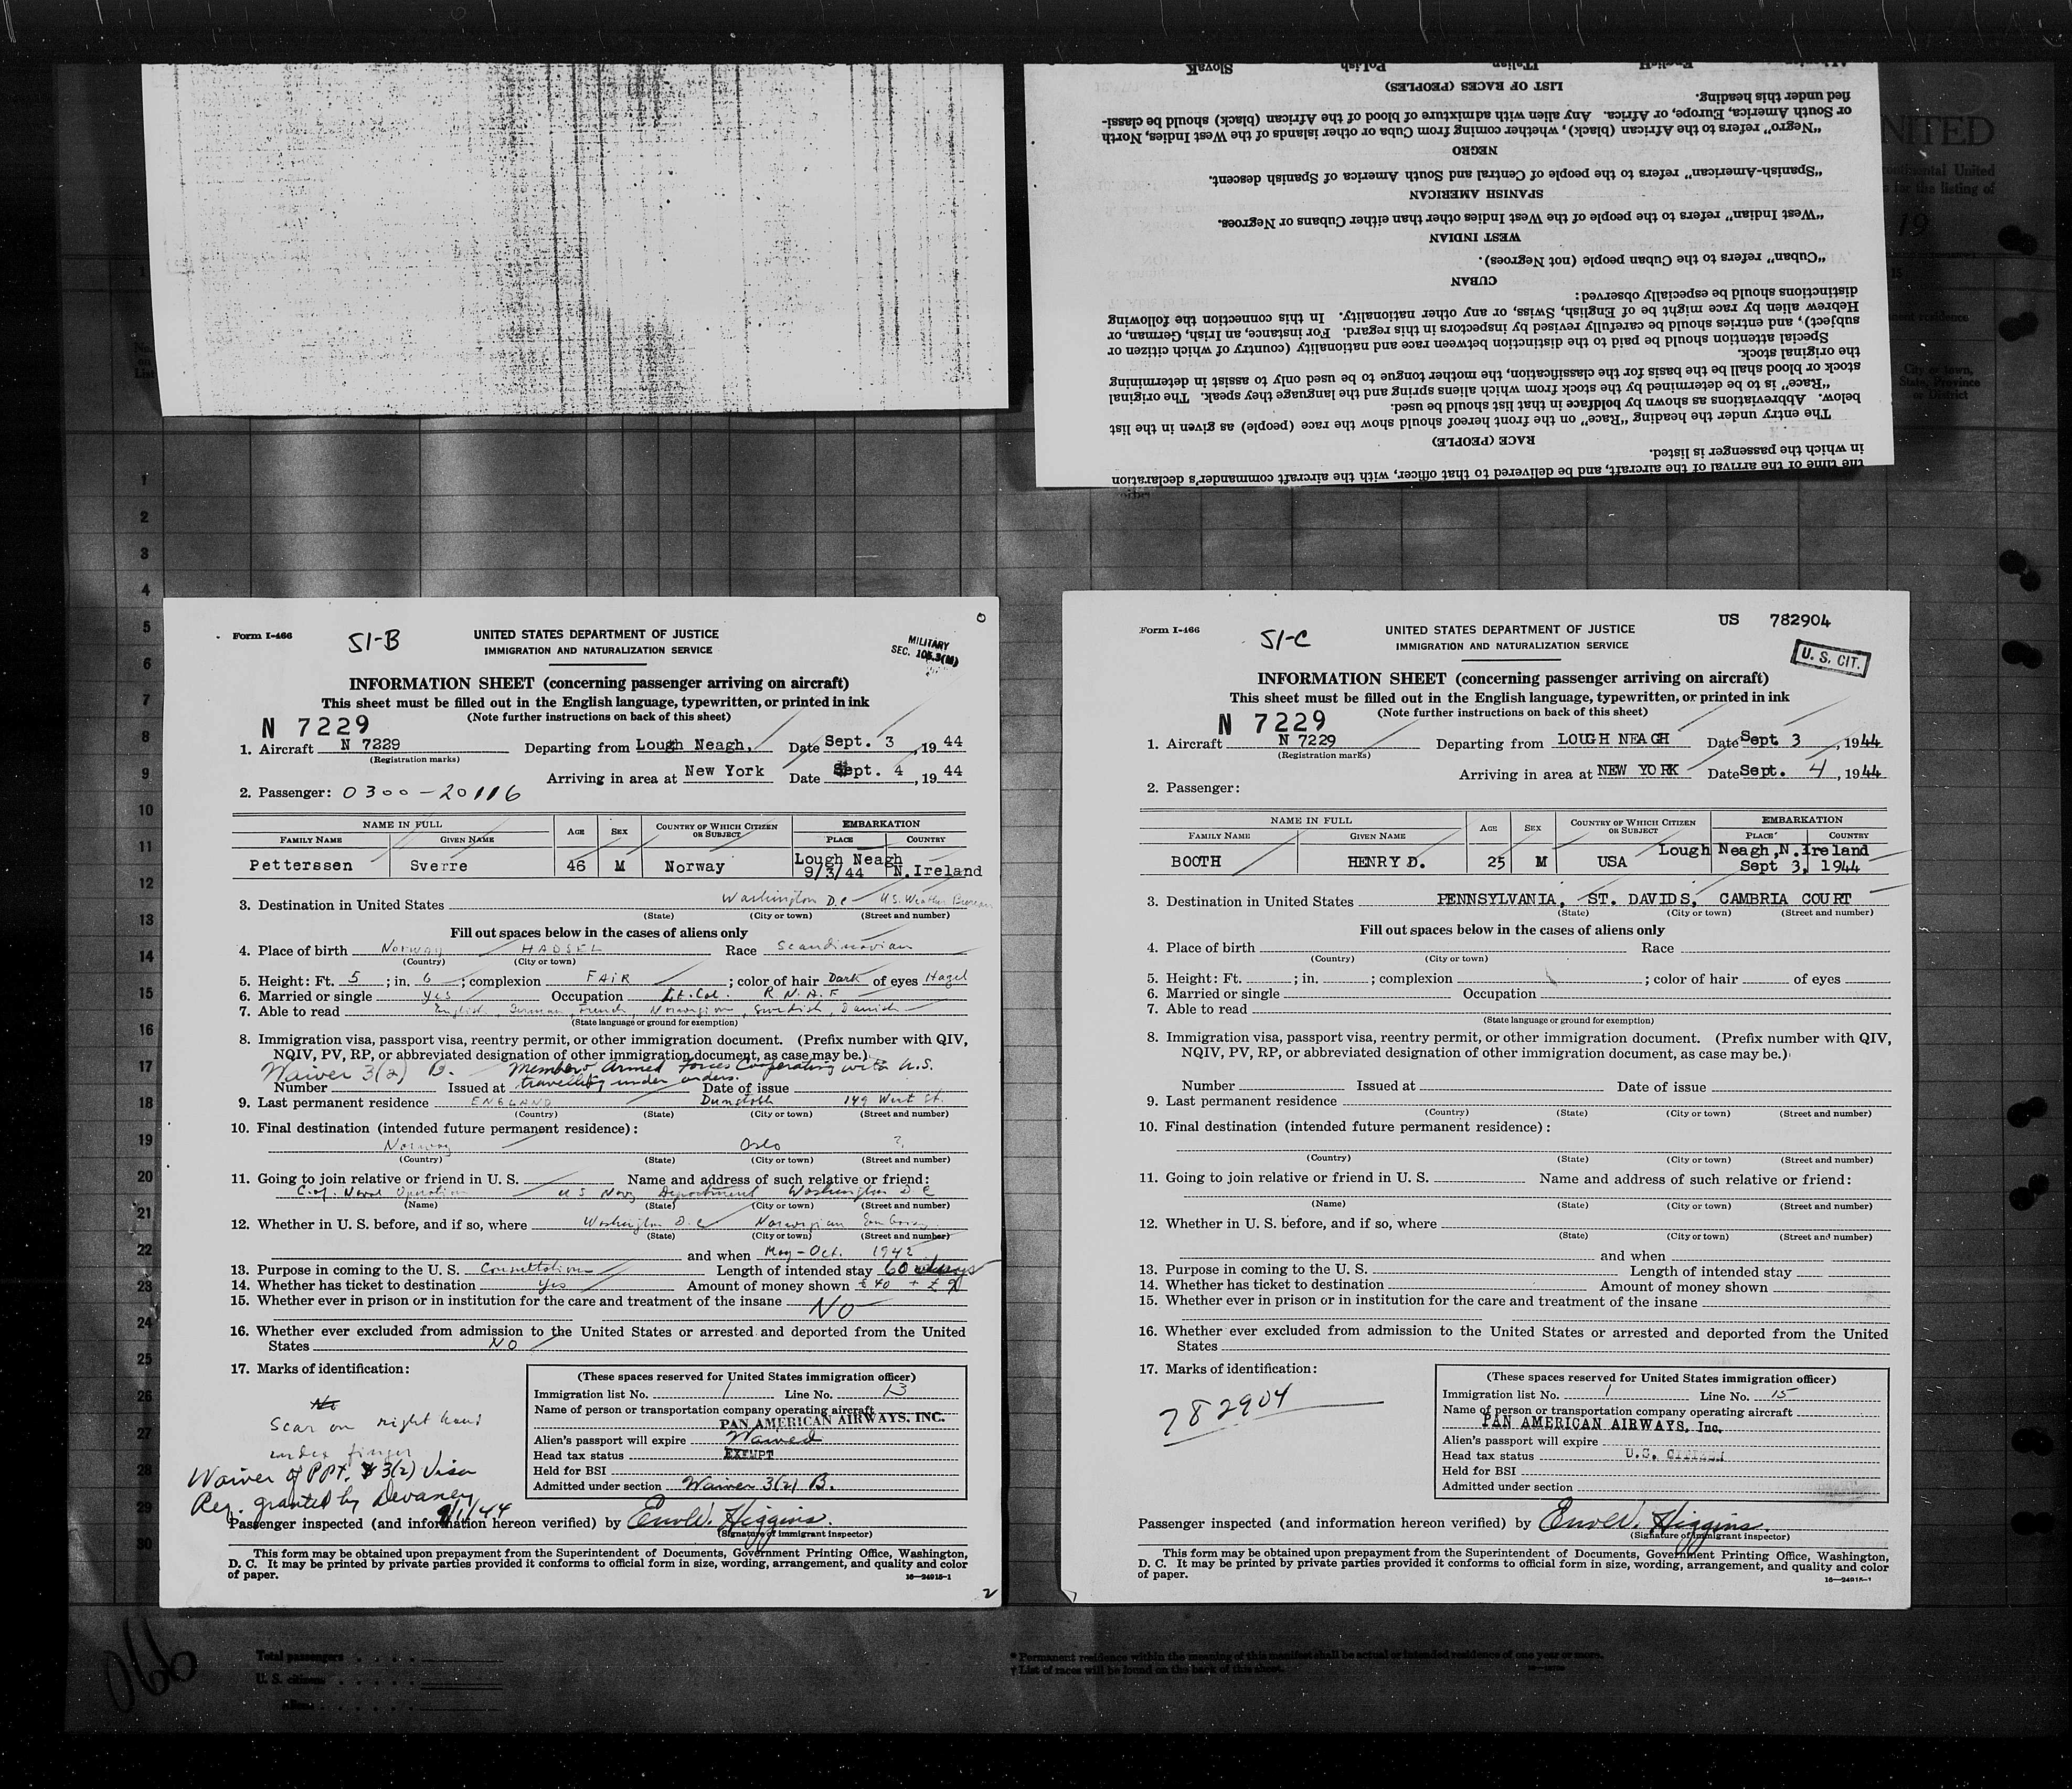 SlovaK Polish ITalian EnglisH
LIST OF RACES (PEOPLES)
fied under this heading.
or South America, Europe, or Africa. Any alien with admixture of blood of the African (black) should be classi-
“Negro” refers to the African (black), whether coming from Cuba or other islands of the West Indies, North
NEGRO
“Spanish-American” refers to the people of Central and South America of Spanish descent.
SPANISH AMERICAN
“West Indian” refers to the people of the West Indies other than either Cubans or Negroes.
WEST INDIAN
“Cuban” refers to the Cuban people (not Negroes).
CUBAN
distinctions should be especially observed:
Hebrew alien by race might be of English, Swiss, or any other nationality. In this connection the following
subject), and entries should be carefully revised by inspectors in this regard. For instance, an Irish, German, or
Special attention should be paid to the distinction between race and nationality (country of which citizen or
the original stock.
stock or blood shall be the basis for the classification, the mother tongue to be used only to assist in determining
“Race” is to be determined by the stock from which aliens spring and the language they speak. The original
below. Abbreviations as shown by boldface in that list should be used.
The entry under the heading “Race” on the front hereof should show the race (people) as given in the list
RACE (PEOPLE)
in which the passenger is listed.
the time of the arrival of the aircraft, and be delivered to that officer, with the aircraft commander's declaration
NITED
continental United
for the listing of
19
15
City or town,
State, Province
or District
No.
on
List
1
2
3
4
5
6
7
8
9
10
11
12
13
14
15
16
17
18
19
20
21
22
23
24
25
26
27
28
29
30
Form I-466
51-B
UNITED STATES DEPARTMENT OF JUSTICE
IMMIGRATION AND NATURALIZATION SERVICE
MILITARY
SEC. 105.3(M)
INFORMATION SHEET (concerning passenger arriving on aircraft)
This sheet must be filled out in the English language, typewritten, or printed in ink
(Note further instructions on back of this sheet)
N 7229
1. Aircraft N 7229 Departing from Lough Neagh, Date Sept. 3, 1944
(Registration marks)
Arriving in area at New York Date Sept. 4, 1944
2. Passenger: 0300-20116
NAME IN FULL AGE SEX COUNTRY OF WHICH CITIZEN OR SUBJECT EMBARKATION
FAMILY NAME GIVEN NAME PLACE COUNTRY
Petterssen Sverre 46 M Norway Lough Neagh
9/3/44 N.Ireland
3. Destination in United States Washington D.C. U.S. Weather Bureau
(State) (City or town) (Street and number)
Fill out spaces below in the cases of aliens only
4. Place of birth Norway HADSEL Race Scandinavian
(Country) (City or town)
5. Height: Ft. 5; in. 6; complexion FAIR; color of hair Dark of eyes Hagel
6. Married or single yes Occupation Lt. Col. R.N.A.F
7. Able to read English, German, French, Norwegian, Swedish, Danish
(State language or ground for exemption)
8. Immigration visa, passport visa, reentry permit, or other immigration document. (Prefix number with QIV,
NQIV, PV, RP, or abbreviated designation of other immigration document, as case may be.)
Waiver 3(2) B. Members Armed Forces Cooperating with U.S.
travelling under orders.
Number Issued at Date of issue
9. Last permanent residence ENGLAND Dunstable 149 West St.
(Country) (State) (City or town) (Street and number)
10. Final destination (intended future permanent residence):
Norway Oslo ?
(Country) (State) (City or town) (Street and number)
11. Going to join relative or friend in U. S. Name and address of such relative or friend:
C. of. Naval Operation U S Navy Department Washington D C
(Name) (State) (City or town) (Street and number)
12. Whether in U. S. before, and if so, where Washington D.C Norwegian Embassy
(State) (City or town) (Street and number)
and when May-Oct. 1942
13. Purpose in coming to the U. S. Consultation Length of intended stay 60 days
14. Whether has ticket to destination Yes Amount of money shown £ 40 + £ 2
15. Whether ever in prison or in institution for the care and treatment of the insane NO
16. Whether ever excluded from admission to the United States or arrested and deported from the United
States NO
17. Marks of identification:
Scar on right hand
index finger
Waiver of PPt. & 3(2) Visa
Reg. granted by Devaney
9/1/44
(These spaces reserved for United States immigration officer)
Immigration list No. 1 Line No. 13
Name of person or transportation company operating aircraft
PAN AMERICAN AIRWAYS, INC.
Alien's passport will expire Waived
Head tax status EXEMPT
Held for BSI
Admitted under section Waiver 3(2) B.
Passenger inspected (and information hereon verified) by Higgins.
(Signature of immigrant inspector)
This form may be obtained upon prepayment from the Superintendent of Documents, Government Printing Office, Washington,
D. C. It may be printed by private parties provided it conforms to official form in size, wording, arrangement, and quality and color
of paper.
16—24915-1
2
Form I-466
51-C
UNITED STATES DEPARTMENT OF JUSTICE
IMMIGRATION AND NATURALIZATION SERVICE
US 782904
U. S. CIT.
INFORMATION SHEET (concerning passenger arriving on aircraft)
This sheet must be filled out in the English language, typewritten, or printed in ink
(Note further instructions on back of this sheet)
N 7229
1. Aircraft N 7229 Departing from LOUGH NEAGH Date Sept 3, 1944
(Registration marks)
Arriving in area at NEW YORK Date Sept. 4, 1944
2. Passenger:
NAME IN FULL AGE SEX COUNTRY OF WHICH CITIZEN OR SUBJECT EMBARKATION
FAMILY NAME GIVEN NAME PLACE COUNTRY
BOOTH HENRY D. 25 M USA Lough Neagh,N.Ireland
Sept 3, 1944
3. Destination in United States PENNSYLVANIA, ST. DAVIDS, CAMBRIA COURT
(State) (City or town) (Street and number)
Fill out spaces below in the cases of aliens only
4. Place of birth Race
(Country) (City or town)
5. Height: Ft. ; in. ; complexion ; color of hair of eyes
6. Married or single Occupation
7. Able to read
(State language or ground for exemption)
8. Immigration visa, passport visa, reentry permit, or other immigration document. (Prefix number with QIV,
NQIV, PV, RP, or abbreviated designation of other immigration document, as case may be.)
Number Issued at Date of issue
9. Last permanent residence
(Country) (State) (City or town) (Street and number)
10. Final destination (intended future permanent residence):
(Country) (State) (City or town) (Street and number)
11. Going to join relative or friend in U. S. Name and address of such relative or friend:
(Name) (State) (City or town) (Street and number)
12. Whether in U. S. before, and if so, where
(State) (City or town) (Street and number)
and when
13. Purpose in coming to the U. S. Length of intended stay
14. Whether has ticket to destination Amount of money shown
15. Whether ever in prison or in institution for the care and treatment of the insane
16. Whether ever excluded from admission to the United States or arrested and deported from the United
States
17. Marks of identification:
782904
(These spaces reserved for United States immigration officer)
Immigration list No. 1 Line No. 15
Name of person or transportation company operating aircraft
PAN AMERICAN AIRWAYS, Inc.
Alien's passport will expire
Head tax status U.S. CITIZEN
Held for BSI
Admitted under section
Passenger inspected (and information hereon verified) by Higgins.
(Signature of immigrant inspector)
This form may be obtained upon prepayment from the Superintendent of Documents, Government Printing Office, Washington,
D. C. It may be printed by private parties provided it conforms to official form in size, wording, arrangement, and quality and color
of paper.
16—24915-1
066
Total passengers
U. S. citizens
Aliens
* Permanent residence within the meaning of this manifest shall be actual or intended residence of one year or more.
† List of races will be found on the back of this sheet.